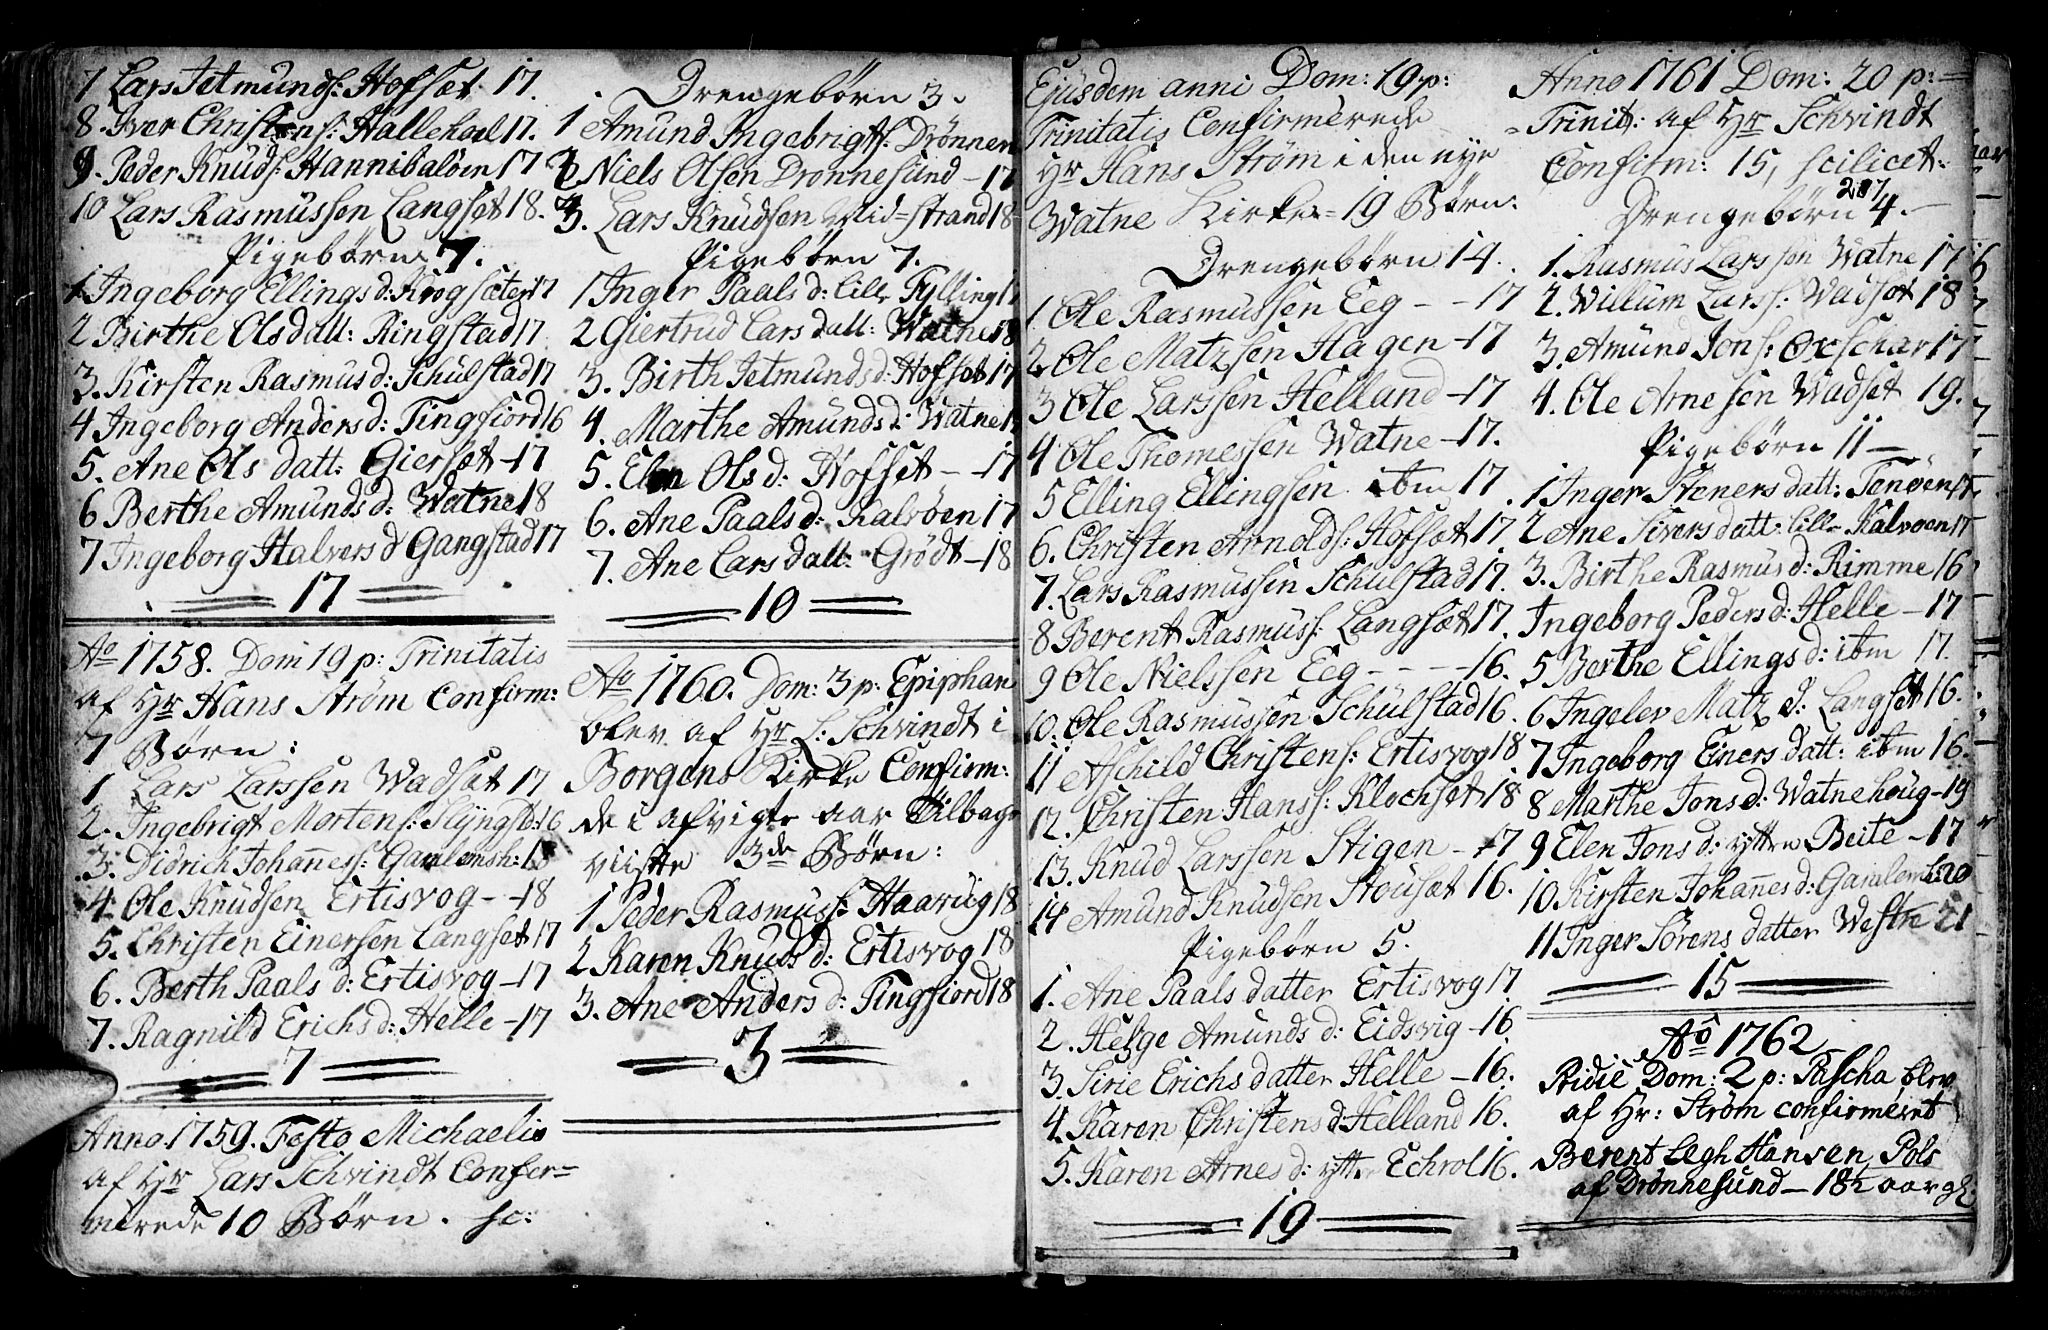 7 Lars Jetmunds: Hofset. 17.
8. Iver Christens: Hallehoel 17.
9. Peder Knuds: Hannibaløen 17
10 Lars Rasmussen Langset 18.
Pigebørn 7.
1 Ingeborg Ellings d: Krogsæter 17
2 Birthe Olsdatt: Ringstad 17
3. Kirsten Rasmus d: Schulstad 17
4 Ingeborg Anders d: Tingfiord 16
5. Ane Ols datt: Gierset - 17
6 Berthe Amunds d: Watne 18
7 Ingeborg Halvers d Gangstad 17
17
Ao 1758. Dom 19 p: Trinitatis
af Hr Hans Strøm Confirm:
7 Børn:
1 Lars Larssen Wadset 17
2. Ingebrigt Mortens: 16
3. Didrich Johañess: Gamlemsh: 18
4. Ole Knudsen Ertisvog - - 18
5. Christen Einersen Langset 17
6. Berth Paals d: Ertisvog - 17
7. Ragnild Erichs d: Helle - 17
7
Anno 1759. Festo Michaelis
af Hr Lars Schvindt Confir=
merede 10 Børn. sc:
Drengebørn 3.
1 Amund Ingebrigts: Drønnen
2 Niels Olsen Drønnesund - 17
3. Lars Knudsen Mid=strand 18
Pigebørn 7.
1 Inger Paals d: Lille Fylling 17
2 Giertrud Lars datt: Watne 18
3. Birth Jetmunds d: Hofset 17
4. Marthe Amunds d: Watne
5. Elen Ols d: Hofset - - 17
6. Ane Paals d: Kalvøen 17
7. Ane Lars datt: Grødt - 18
10
Ao 1760. Dom: 3 p: Epiphan
blev af Hr L: Schvindt i
Borgens Kirke Confirm:
de i afvigte aar Tilbage
viiste 3de Børn:
1 Peder Rasmuss: Haavig 18
2 Karen Knuds d: Ertisvog 18
3. Ane Anders d: Tingfiord 18
3
Ejusdem anni Dom: 19 p:
Trinitatis Confirmerede
Hr Hans Strøm i den nye
Watne Kirke = 19 Børn:
Drengebørn 14.
1. Ole Rasmussen Eeg - - 17
2. Ole Matzsen Hagen - 17
3 Ole Larssen Helland - 17
4 Ole Thomessen Watne - 17.
5 Elling Ellingsen ibm 17
6. Christen Arnolds: Hofset 17
7. Lars Rasmussen Schulstad 17.
8 Berent Rasmuss: Langset 17.
9 Ole Nielssen Eeg - - - - 16.
10. Ole Rasmussen Schulstad 16.
11 Aschild Christens: Ertisvog 18
12. Christen Hanss: Klochset 18
13. Knud Larssen Stigen - 17
14 Amund Knudsen Stouset 16.
Pigebørn 5.
1. Ane Paals datter Ertisvog 17
2. Helge Amunds d: Eidsvig - 16
3. Sirie Erichs datter Helle - 16.
4. Karen Christens d: Helland 16.
5. Karen Arnes d: ytter Echrol 16.
19
Anno 1761 Dom: 20 p: =
Trinit: af Hr Schvindt
Confirm: 15, scilicet:
217
Drengebørn 4.
1. Rasmus Larssøn Watne 17
2. Willum Larss: Wadset 18
3. Amund Jons: Oxschar 17
4. Ole Arnesen Wadset 19.
Pigebørn 11 -
1 Inger Steners datt: Tenøen 17
2 Ane Sivers datt: Lille Kalvøen 17
3. Birthe Rasmus d: Rimme 16
Ingeborg Peders d: Helle - 17
5 Berthe Ellings d: ibm 17.
6 Ingelev Matz d: Langset 16.
7 Ingeborg Einers datt: ibm 16.
8 Marthe Jons d: Watnehoug - 19
9 Elen Jons d: ytter Beite - 17
10 Kirsten Johañes d: Gamlemsh 20
11 Inger Sørens datter Westre 21
15
Ao 1762
Pridie Dom: 2 p: Pascha blev
af Hr: Strøm confirmeret
Berent Legh Hansen Pols
af Drønnesund - 18½ aar gl: